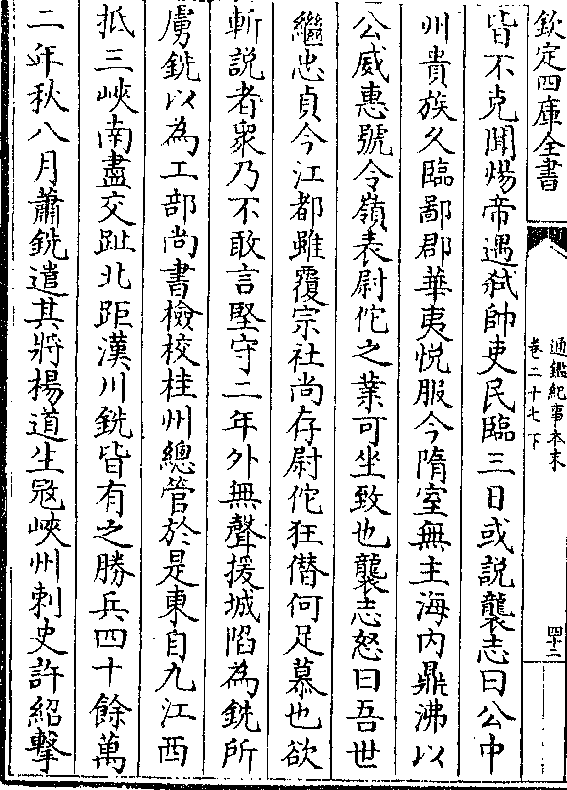 欽定四庫全書
通鑑紀事本末
卷二十七下
四十二
皆不克聞煬帝遇弑帥吏民臨三日或説襲志曰公中
州貴族久臨鄙郡華夷悦服今隋室無主海内鼎沸以
公威惠號令嶺表尉佗之業可坐致也襲志怒曰吾世
繼忠貞今江都雖覆宗社尚存尉佗狂僭何足慕也欲
斬説者衆乃不敢言堅守二年外無聲援城陷為銑所
虜銑以為工部尚書檢校桂州總管於是東自九江西
抵三峽南盡交趾北距漢川銑皆有之勝兵四十餘萬
二年秋八月蕭銑遣其將楊道生宼峽州刺史許紹擊